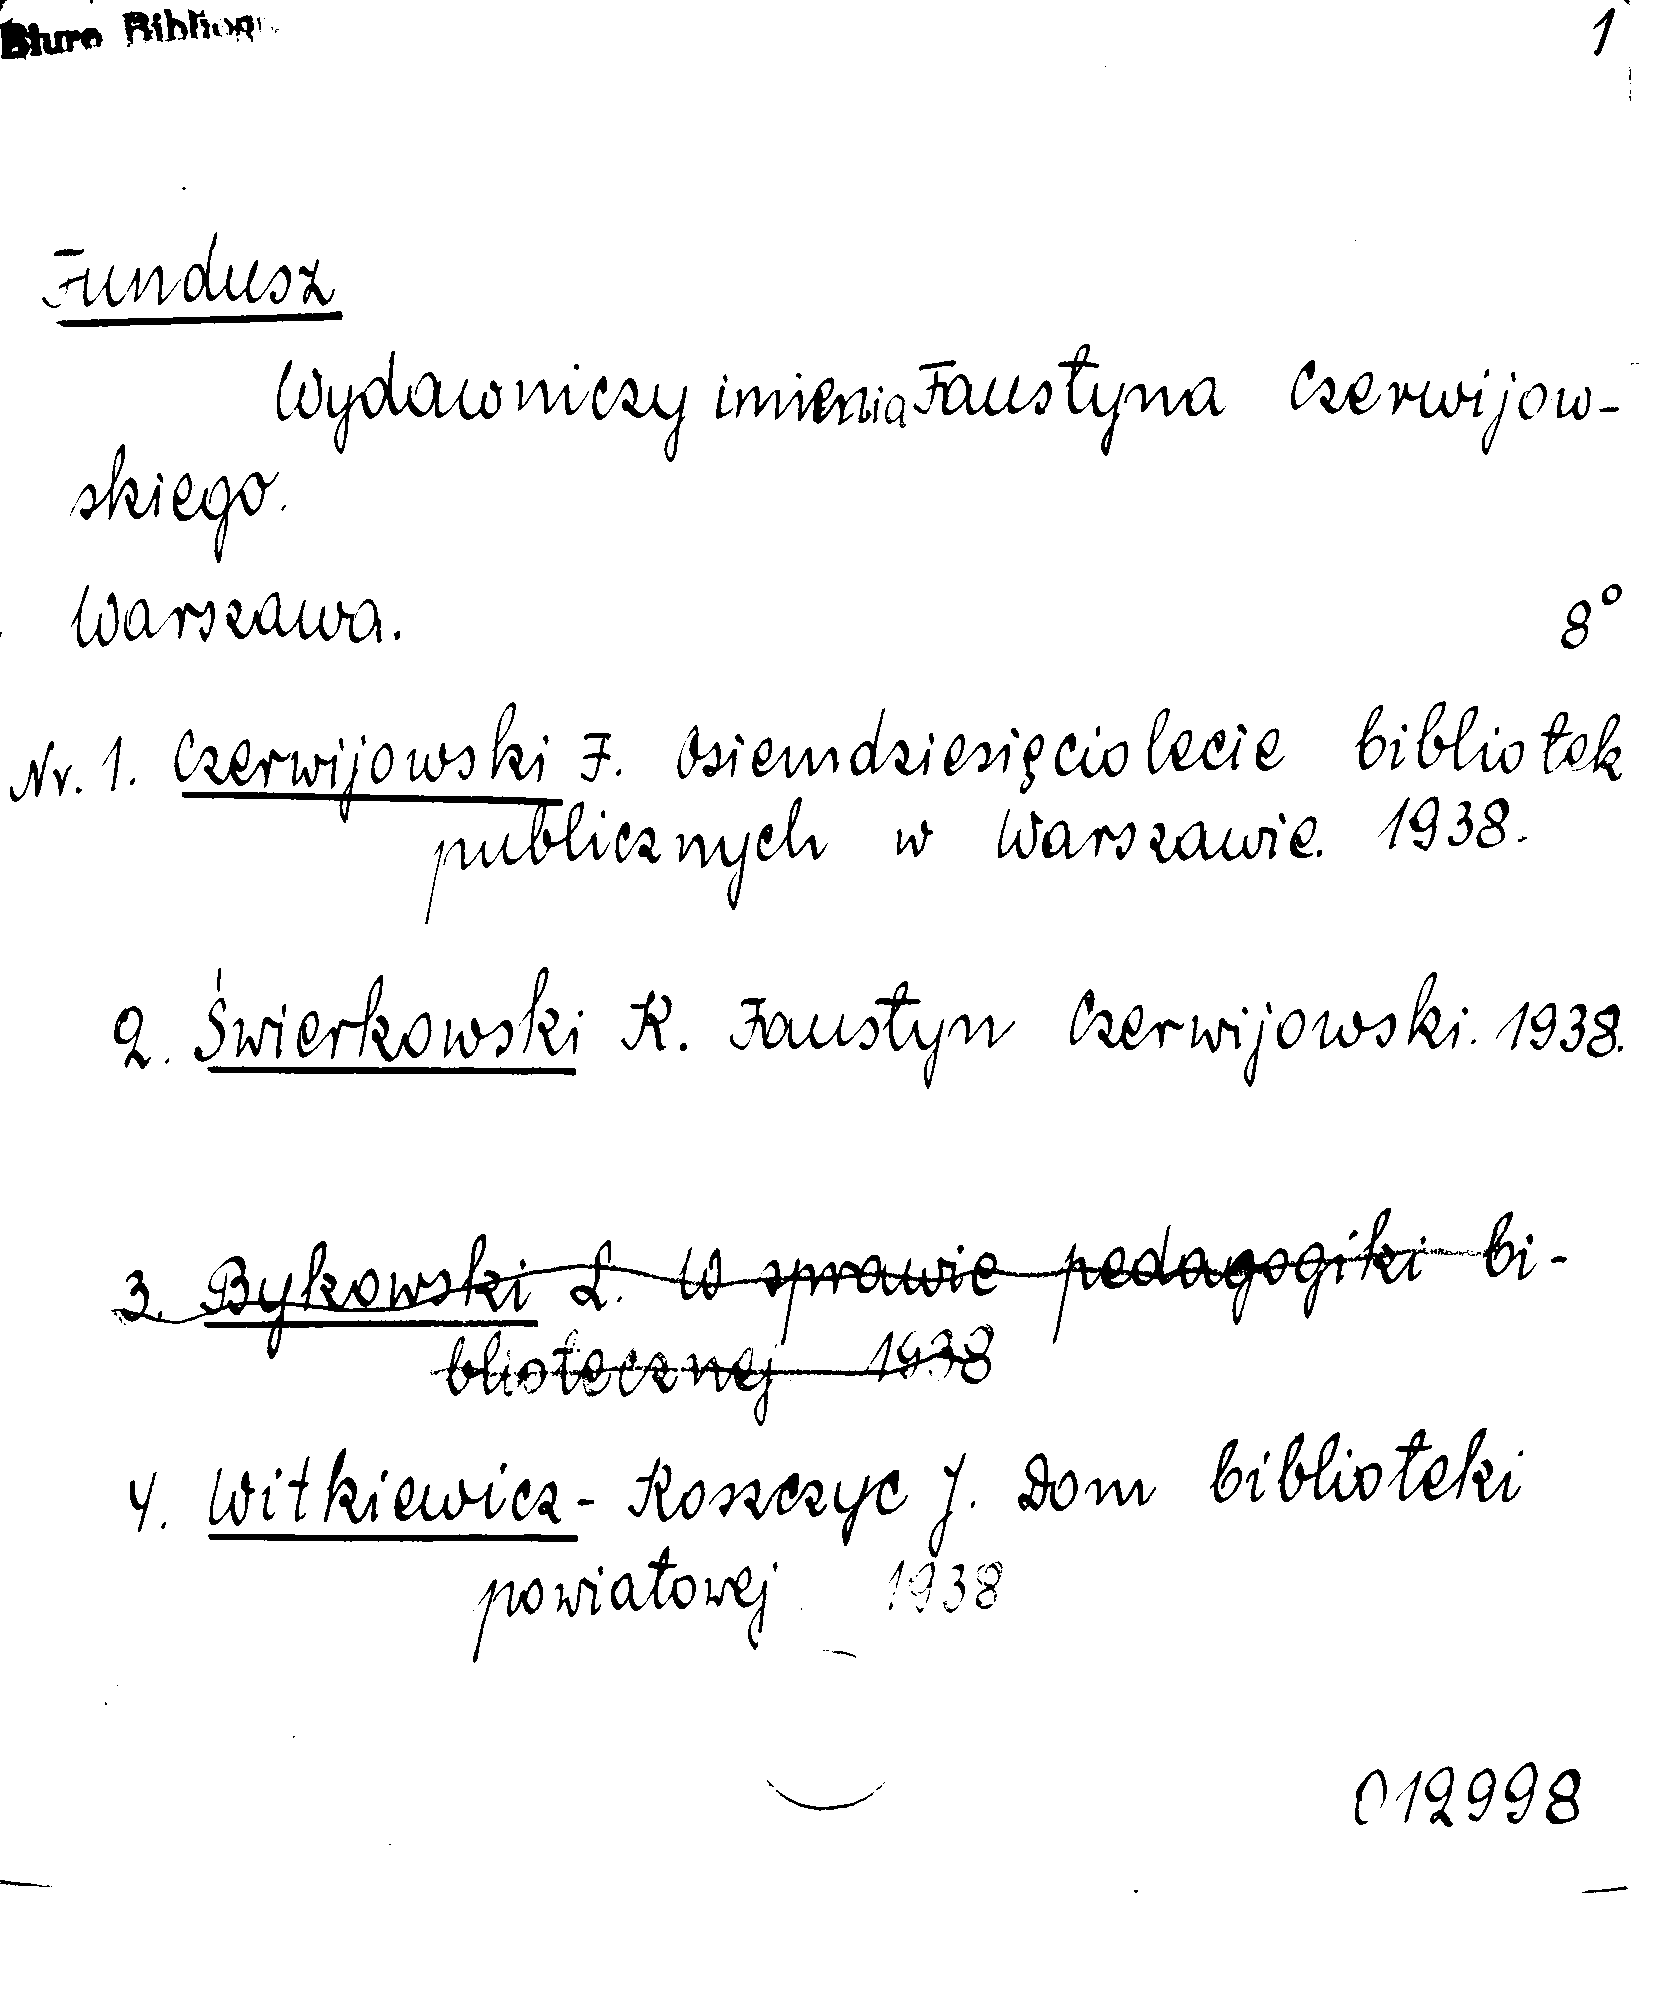 Biuro Bibliogr
1
Fundusz
Wydawniczy imienia Faustyna Czerwijow-
skiego.
Warszawa. 8°
Nr. 1. Czerwijowski F. Osiemdziesięciolecie bibliotek
publicznych w Warszawie. 1938.
2. Świerkowski K. Faustyn Czerwijowski. 1938.
3. Bykowski L. W sprawie pedagogiki bi-
bliotecznej 1938
4. Witkiewicz-Koszczyc J. Dom biblioteki
powiatowej 1938
012998